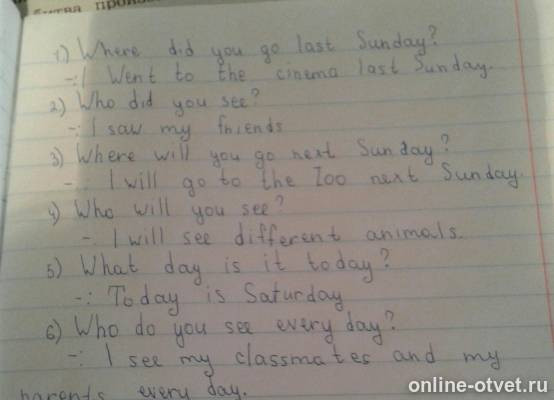 битва
1) Where did you go last Sunday?
-: I Went to the cinema last Sunday.
2) Who did you see?
-: I saw my friends
3) Where will you go next Sunday?
-: I will go to the Zoo next Sunday.
4) Who will you see?
-: I will see different animals.
5) What day is it today?
-: Today is Saturday
6) Who do you see every day?
-: I see my classmates and my
parents every day.
online-otvet.ru